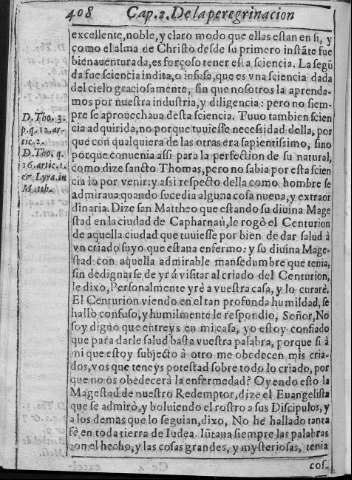 408 Cap. 2. De la peregrinacion
excellente, noble, y claro modo que ellas estan en si, y
como el alma de Christo desde su primero instãte fue
bienauenturada, es forçoso tener esta sciencia. La segũ
da fue sciencia indita, o infusa, que es vna sciencia dada
del cielo graciosamente, sin que nosotros la aprenda-
mos por nuestra industria, y diligencia: pero no siem-
pre se aprouechaua desta sciencia. Tuuo tambien scien
D. Tho. 3.
p. q. 12. ar-
tic. 2.
D. Tho. q.
15. artic. 1.
er Lyra. in
Matth.
cia adquirida, no porque tuuiesse necesidad della, por
que con qualquiera de las otras era sapientissimo, sino
porque conuenia assi para la perfection de su natural,
como dize sancto Thomas, pero no sabia por esta scien
cia lo por venir: y assi respecto della como hombre se
admiraua quando sucedia alguna cosa nueua, y extraor
dinaria. Dize san Mattheo que estando su diuina Mage
stad en la ciudad de Capharnau, le rogò el Centurion
de aquella ciudad que tuuiesse por bien de dar salud à
vn criado suyo que estaua enfermo: y su diuina Mage-
stad con aquella admirable mansedumbre que tenia,
sin dedignarse de yr á visitar al criado del Centurion,
le dixo, Personalmente yrè a vuestra casa, y lo curarè.
El Centurion viendo en el tan profunda humildad, se
hallò confuso, y humilmente le respondio, Señor, No
soy digno que entreys en mi casa, yo estoy confiado
que para darle salud basta vuestra palabra, porque si à
mi que estoy subjecto à otro me obedecen mis cria-
dos, vos que teneys potestad sobre todo lo criado, por
que no os obedecerà la enfermedad? Oyendo esto la
Magestad de nuestro Redemptor, dize el Euangelista
que se admirò, y boluiendo el rostro a sus Discipulos, y
a los demas que lo seguian, dixo, No hé hallado tanta
sè en toda tierra de Iudea. Iũtaua siempre las palabras
con el hecho, y las cosas grandes, y mysteriosas, tenia
cos-